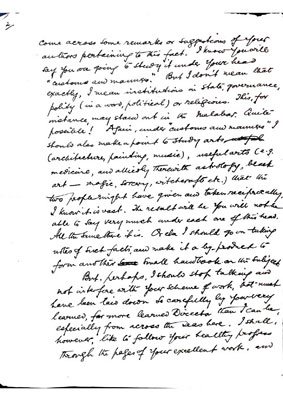 come across some remarks or suggestions of your
authors pertaining to this fact. I know you will
say you are going to study it under your head
"customs and manners." But I don't mean that
exactly, I mean institutions in state, governance,
polity (in a word, political) or religious. This, for
instance, may stand out in the Malabar. Quite
possible! Again, under customs and manners" I
should also make a point to study arts
(architecture, painting, music), useful arts (e.g.
medicine, and alliedly therewith astrology, black
art — magic, sorcery, witchcraft etc.) that the
two people might have given and taken reciprocally.
I know it is vast. The result will be you will not be
able to say very much under each one of this head.
All the same there it is. Or else I should go on taking
notes of such facts, and make it a by-product to
form another small handbook on the subject.
But, perhaps, I should stop talking and
not interfere with your scheme of work, that must
have been laid down so carefully by your very
learned, far more learned Director than I can be,
especially from across the seas here. I shall,
however, like to follow your healthy progress
through the pages of your excellent work, and